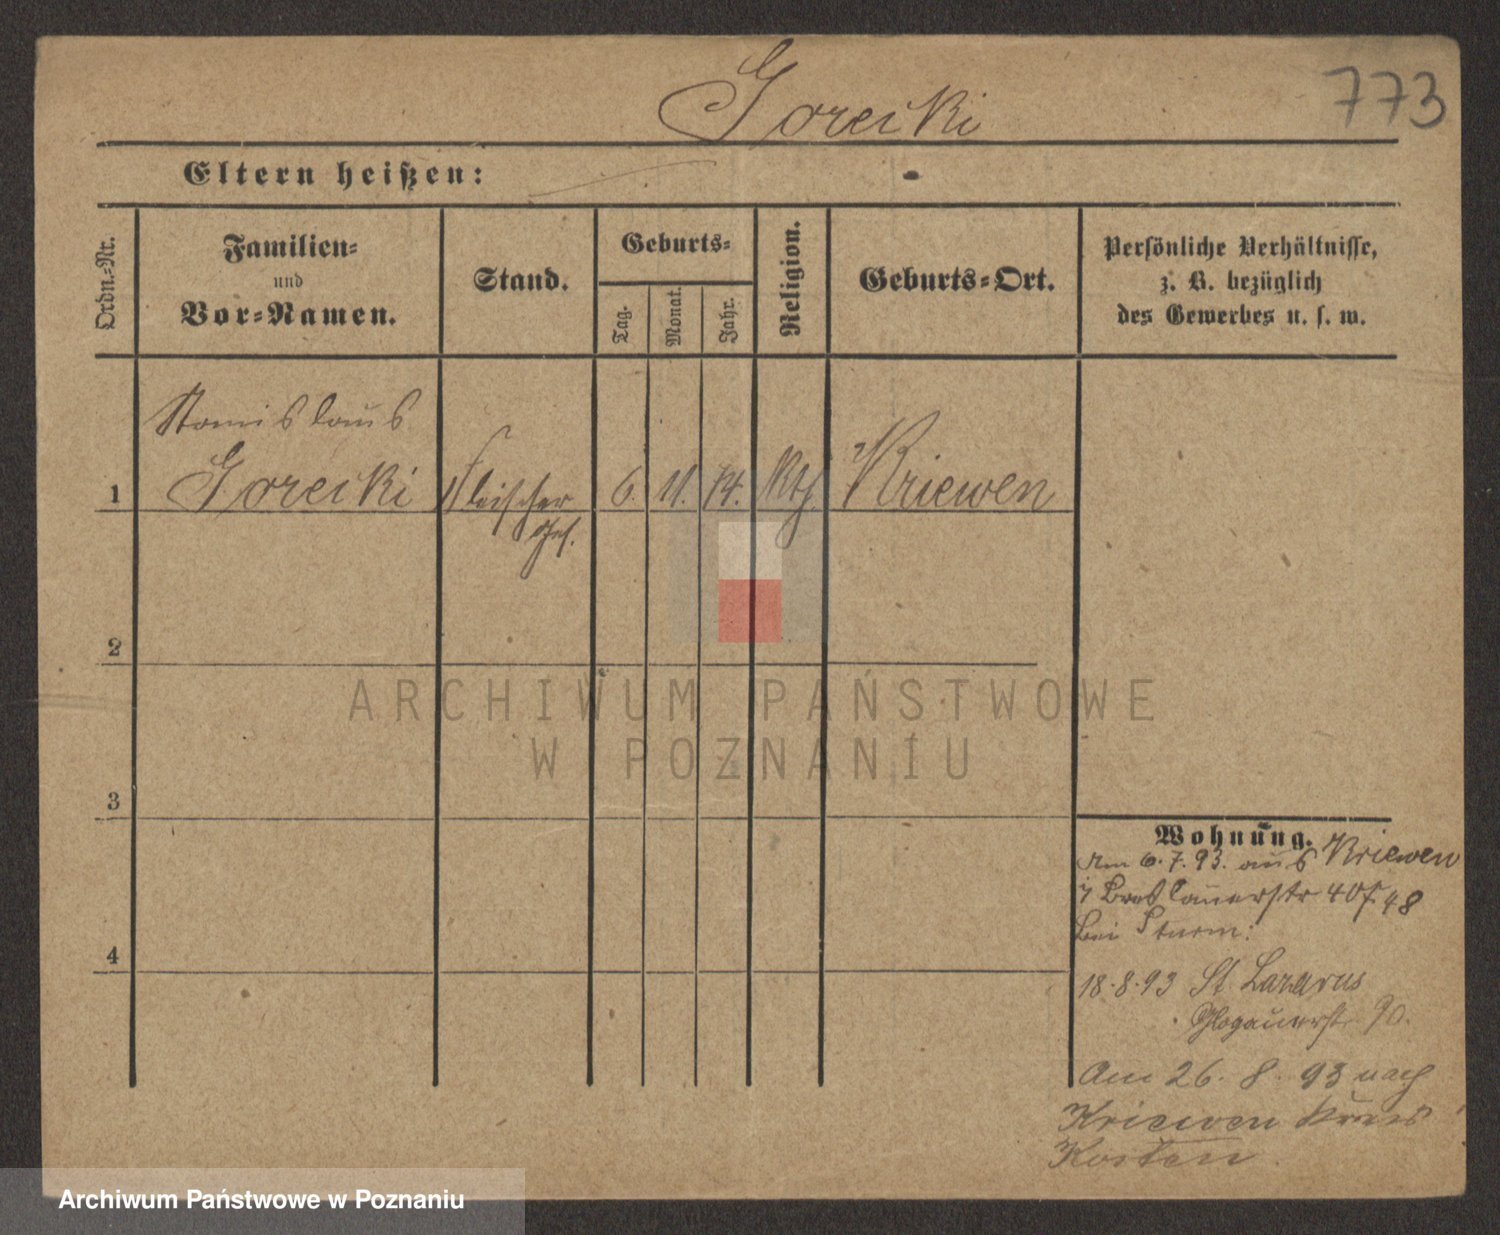 Gorecki
773
Eltern heißen:
Ordn.-Nr.
Familien-
und
Vor-Namen.
Stand.
Geburts-
Tag.
Monat.
Jahr.
Religion.
Geburts-Ort.
Persönliche Verhältnisse,
z. B. bezüglich
des Gewerbes u. s. w.
Stanislaus
1 Gorecki Fleischer 6. 11. 74. Kth. Kriewen
Ges.
2
3
4
Wohnung.
Am 6.7.93. aus Kriewen
Breslauerstr
bei Sturm.
18.8.93 St Lazarus
Glogauerstr. 90.
Am 26. 8. 93 nach
Kriewen Kreis
Kosten
ARCHIWUM PAŃSTWOWE
W POZNANIU
Archiwum Państwowe w Poznaniu